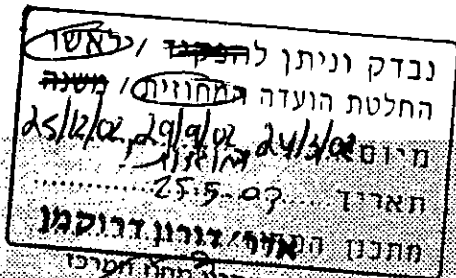 נבדק וניתן להפקיד / לאשר
החלטת הועדה המחוזית / משנה
מיום 24/3/02 29/9/02, 25/12/02
תאריך 25-5-03
מתכנן המחוז אדר' דורון דרוקמן